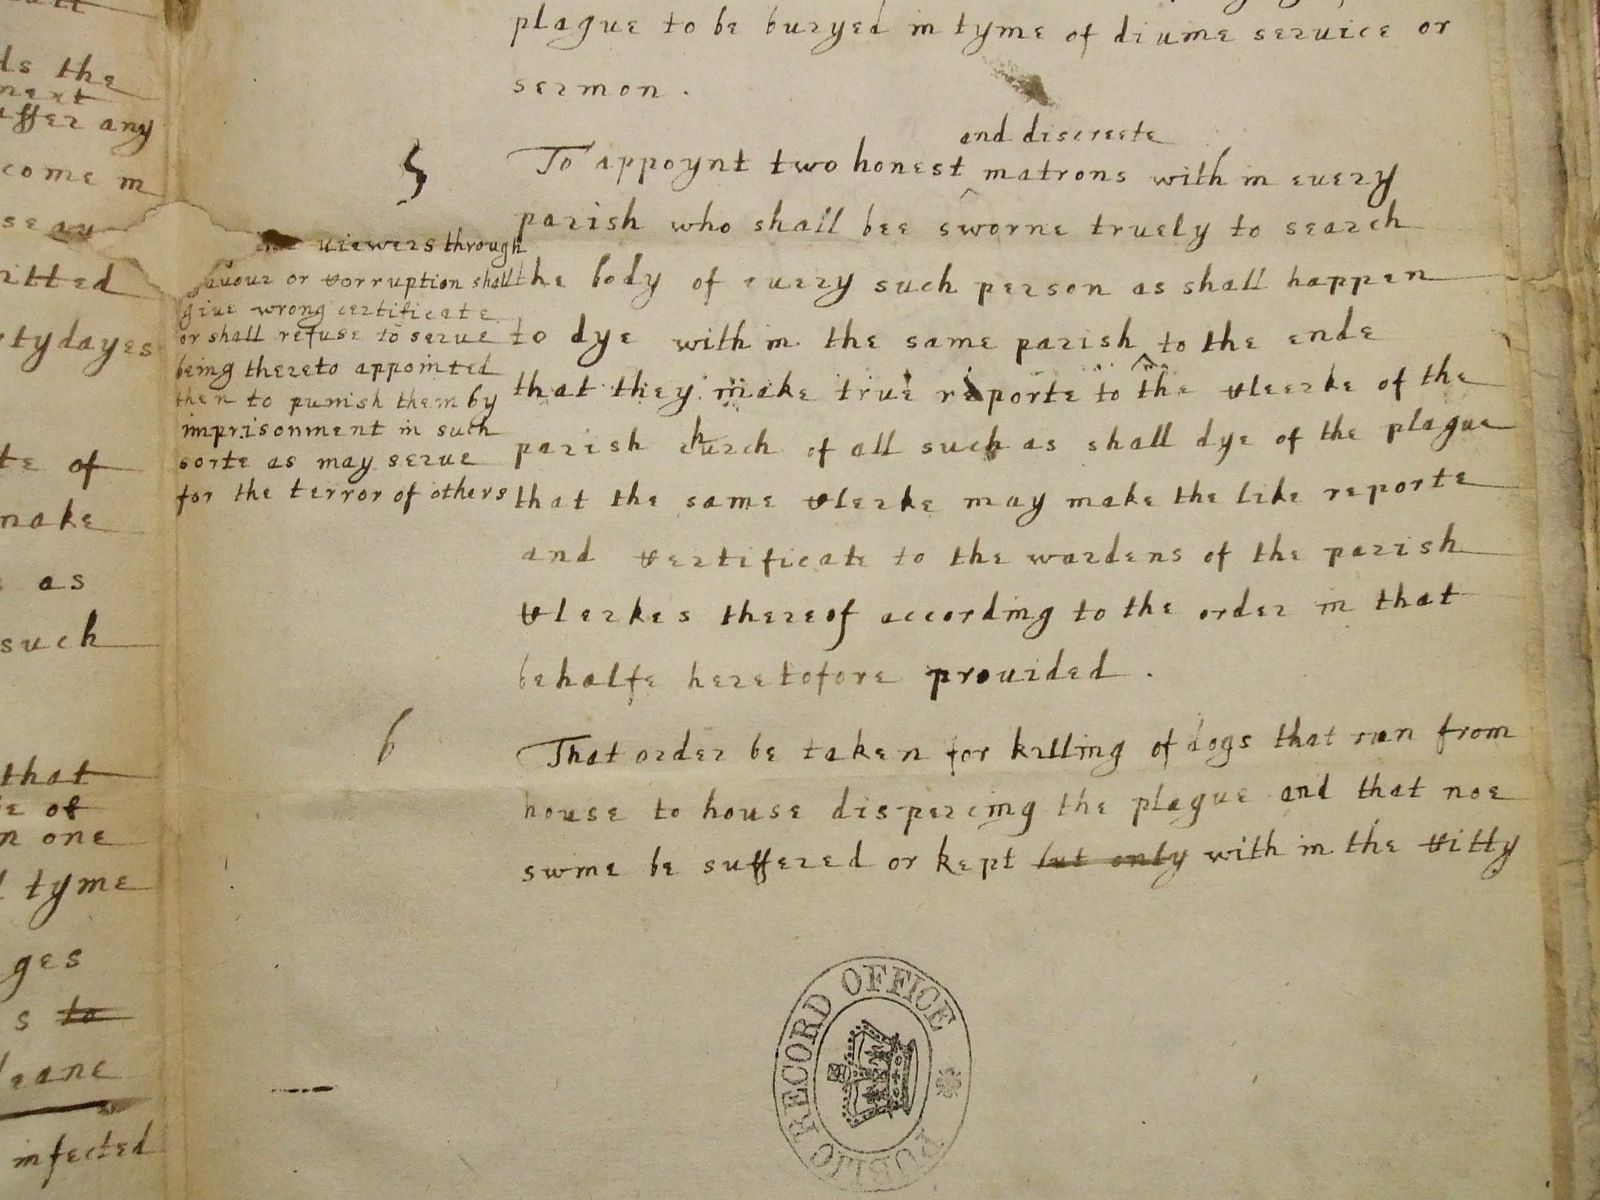 plague to be buryed in tyme of diuine seruice or
sermon .
and discreete
5 To appoynt two honest ^ matrons with in euery
parish who shall bee sworne truely to search
the body of euery such person as shall happen
to dye with in the same parish to the ende
that they make true reporte to the Clerke of the
parish church of all such as shall dye of the plague
that the same Clerke may make the like reporte
and Certificate to the wardens of the parish
Clerkes thereof according to the order in that
behalfe heretofore prouided .
viewers through
fauour or Corruption shall
giue wrong certificate
or shall refuse to serue
being thereto appointed
then to punish them by
imprisonment in such
sorte as may serue
for the terror of others
6 That order be taken for killing of dogs that run from
house to house dispercing the plague and that noe
swine be suffered or kept but only with in the Citty
ds the
any
come in
dayes
te of
make
as
such
that
of
one
tyme
s to
infected
PUBLIC RECORD OFFICE